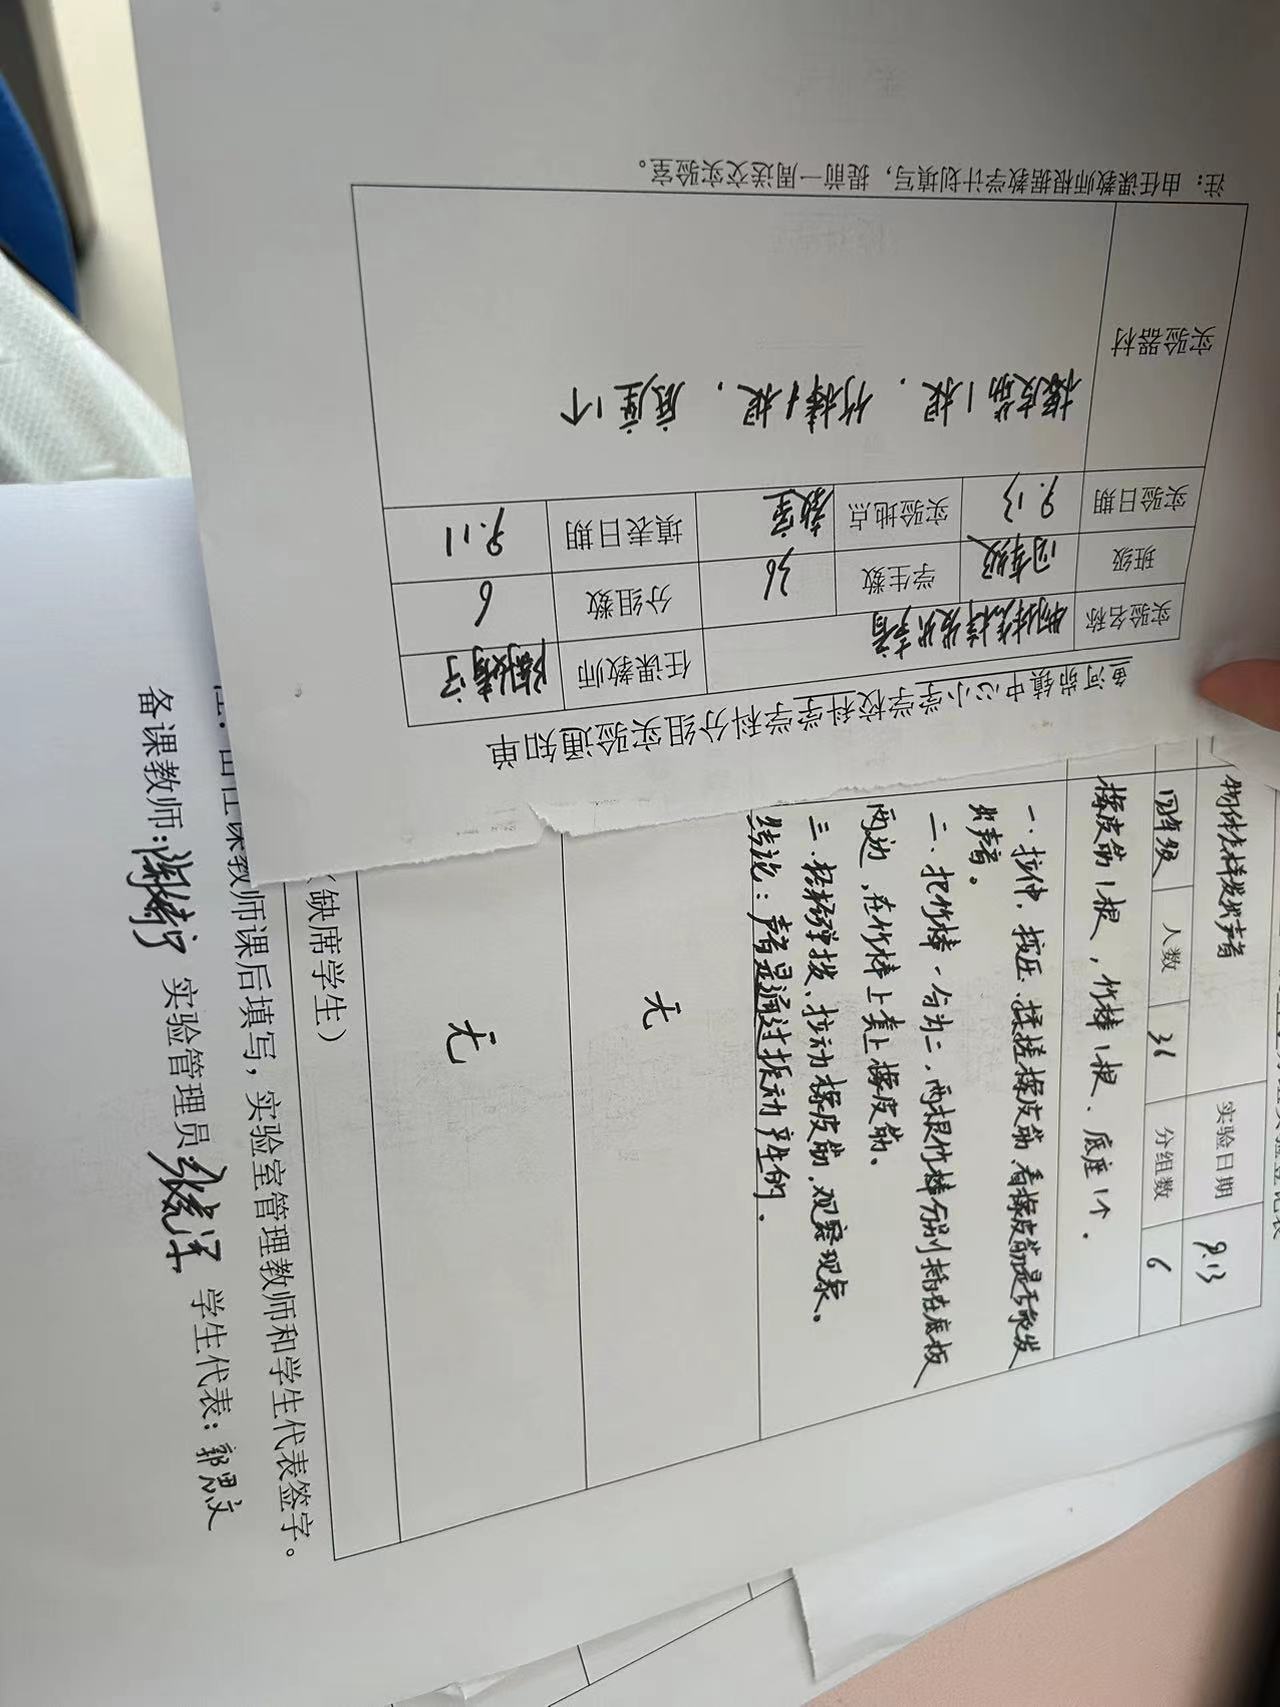 鱼河峁镇中心小学学校科学学科分组实验通知单
实验名称 物体怎样发出声音 任课教师
班级 四年级 学生数 36 分组数 6
实验日期 9.13 实验地点 教室 填表日期 9.11
实验器材 橡皮筋1根，竹棒1根，底座1个
注：由任课教师根据教学计划填写，提前一周送交实验室。
物体怎样发出声音 实验日期 9.13
四年级 人数 36 分组数 6
橡皮筋1根，竹棒1根、底座1个。
一．拉伸、按压、揉搓橡皮筋，看橡皮筋是否能发
出声音。
二、把竹棒一分为二，两根竹棒分别插在底板
两边，在竹棒上套上橡皮筋。
三．轻轻弹拨、拉动橡皮筋，观察现象。
结论：声音是通过振动产生的．
无
无
（缺席学生）
注：由任课教师课后填写，实验室管理教师和学生代表签字。
备课教师： 实验管理员 学生代表：郭思文